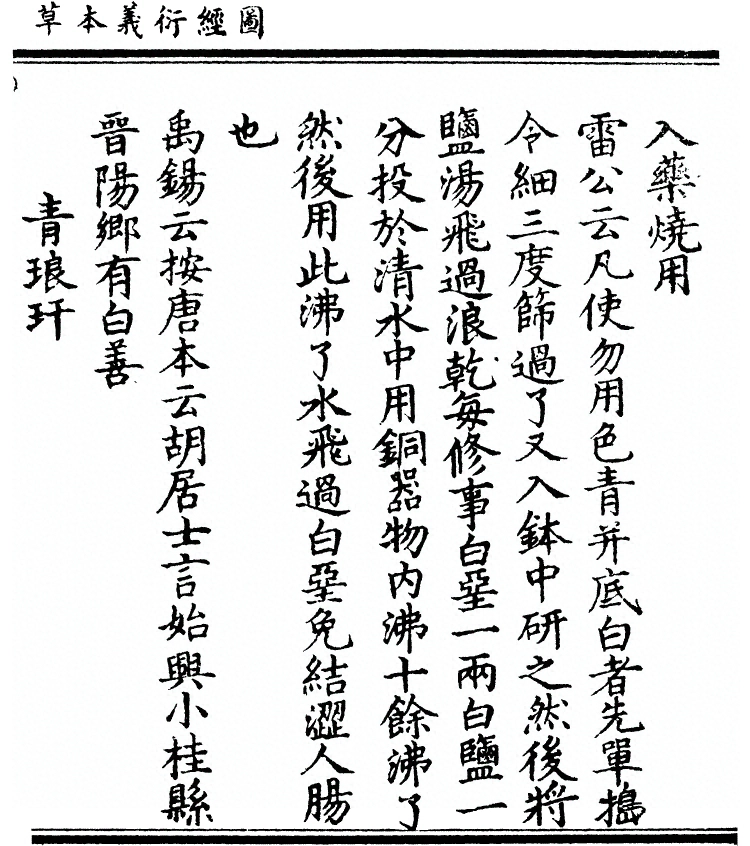 圖經衍義本草
入藥燒用
雷公云凡使勿用色青并底白者先單搗
令細三度篩過了又入鉢中研之然後將
鹽湯飛過浪乾每修事白堊一兩白鹽一
分投於清水中用銅器物內沸十餘沸了
然後用此沸了水飛過白堊免結澀人腸
也
禹錫云按唐本云胡居士言始興小桂縣
晉陽鄉有白善
青琅玕